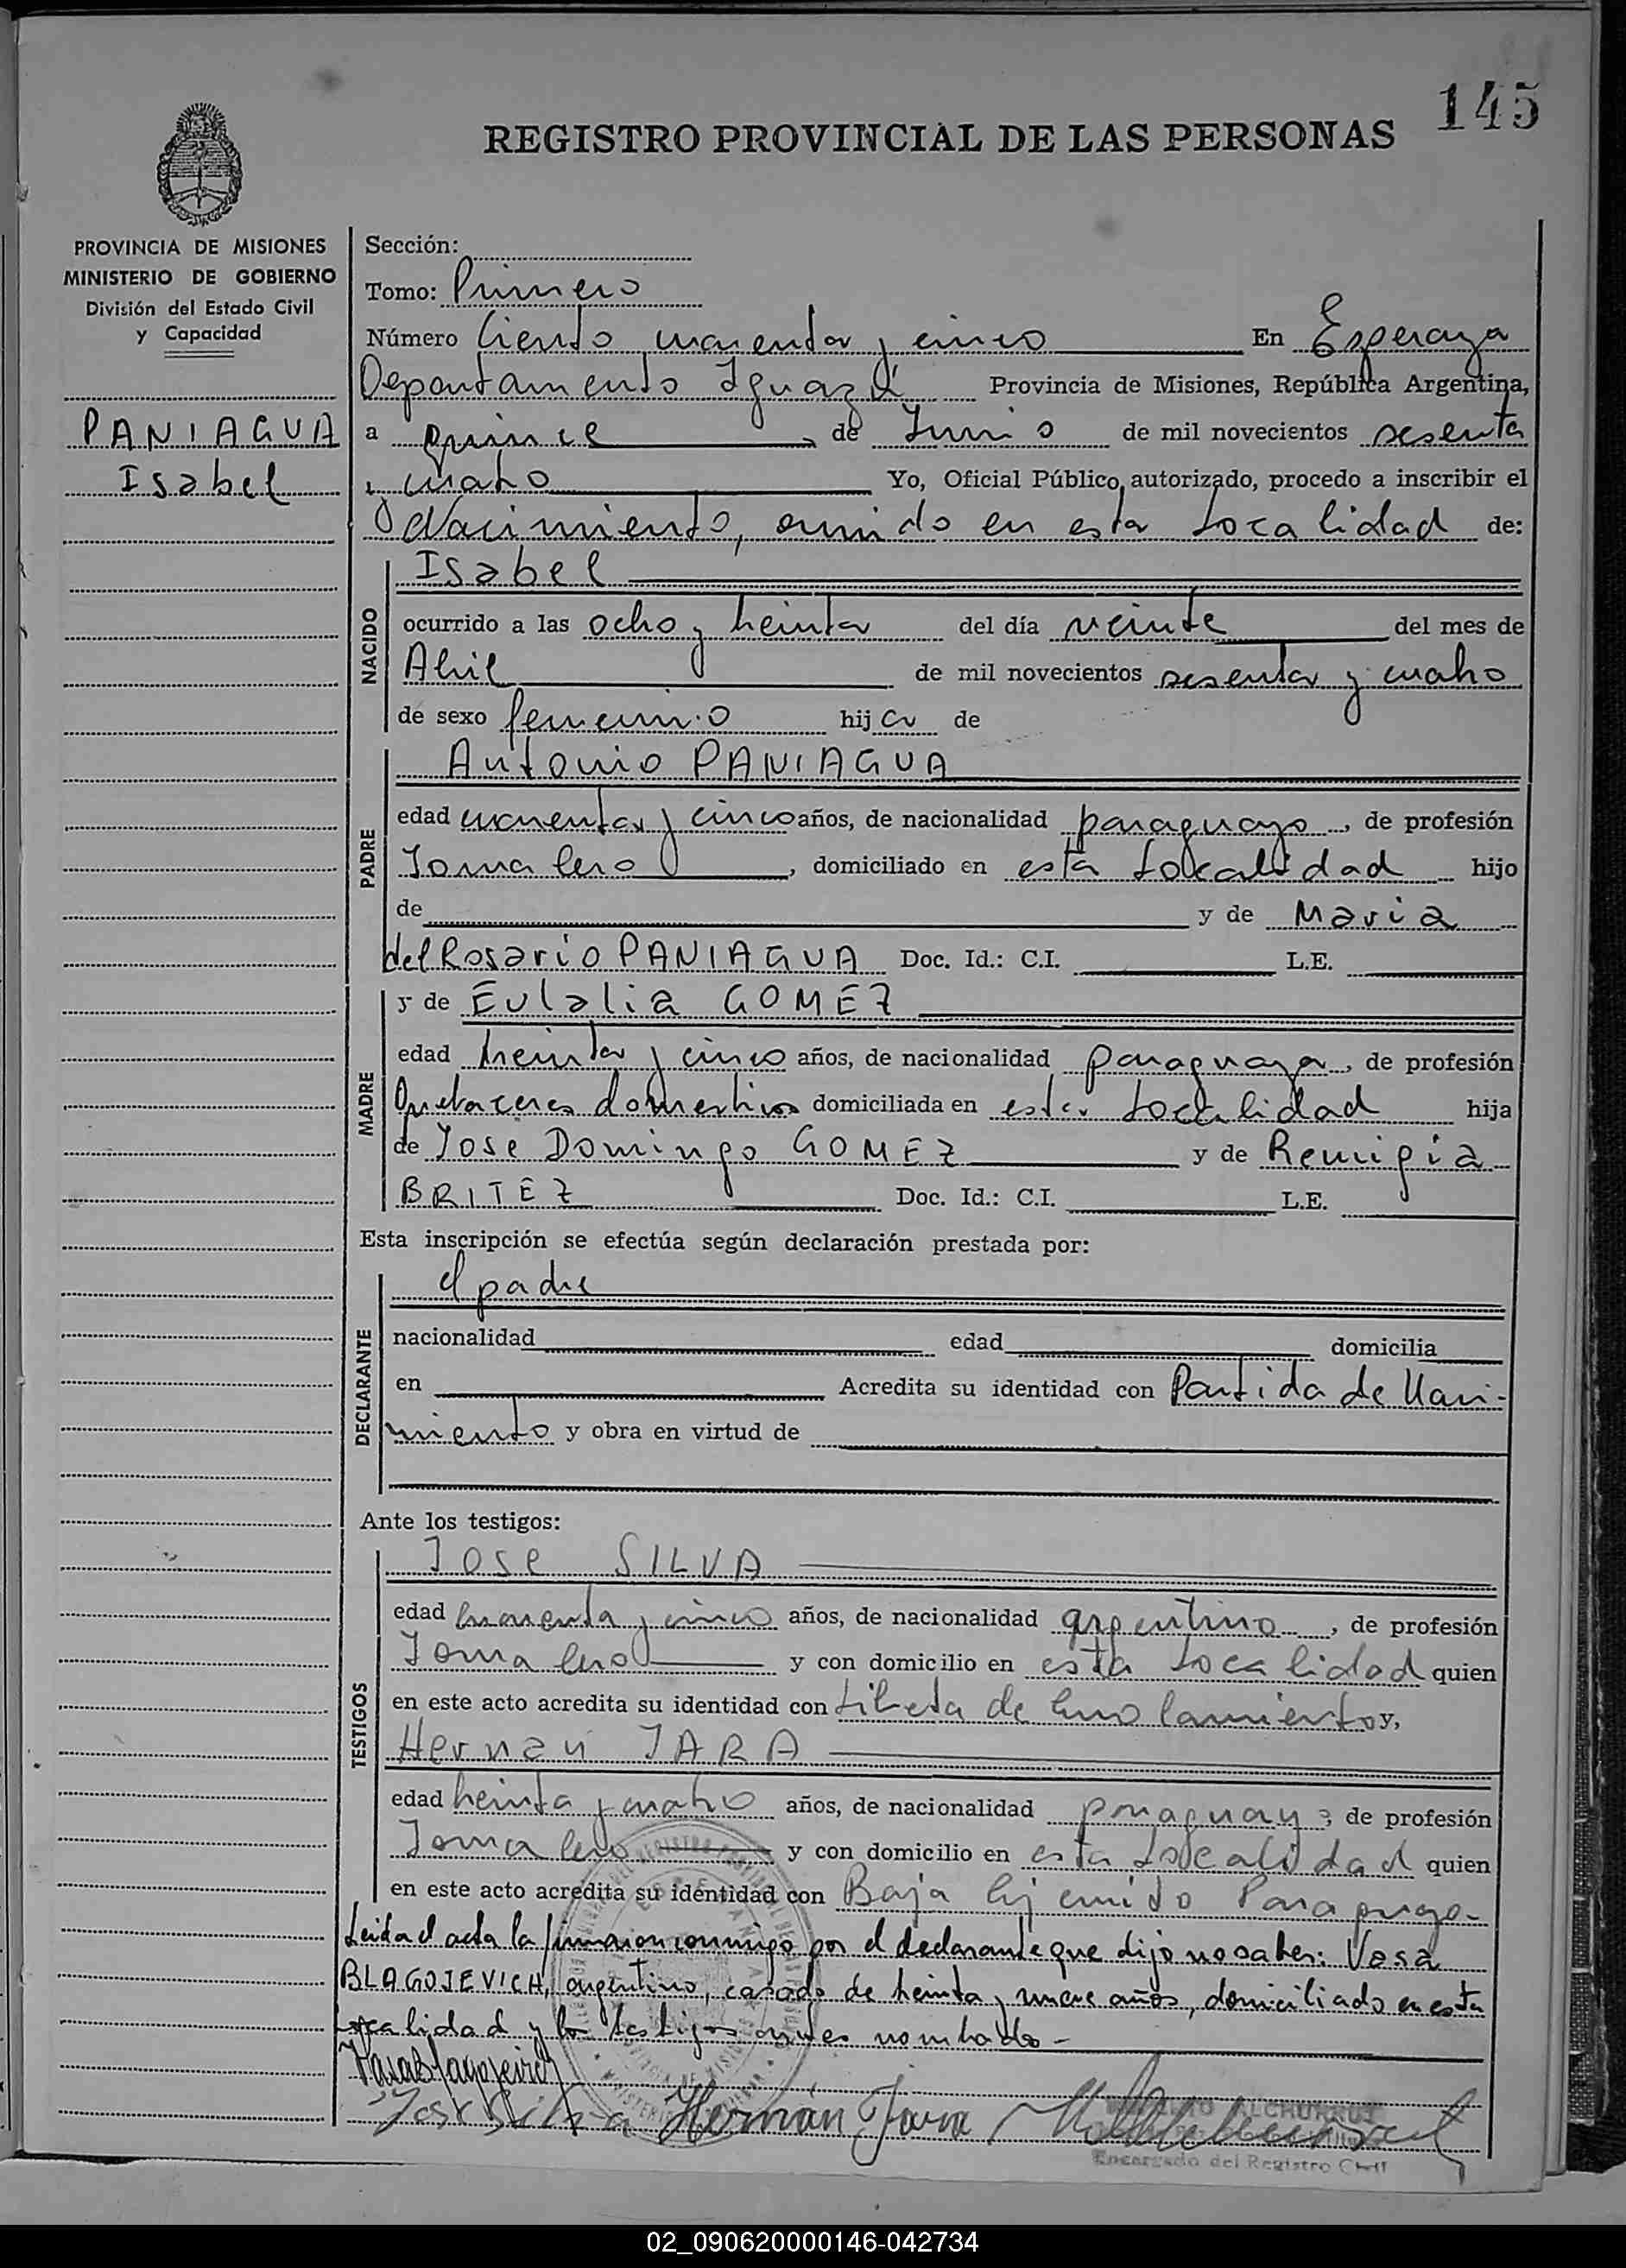 145
REGISTRO PROVINCIAL DE LAS PERSONAS
PROVINCIA DE MISIONES
MINISTERIO DE GOBIERNO
División del Estado Civil
y Capacidad
PANIAGUA
Isabel
Sección:
Tomo: Primero
Número Ciento cuarenta y cinco En Esperanza
Departamento Iguazú Provincia de Misiones, República Argentina,
a quince de Junio de mil novecientos sesenta
y cuatro Yo, Oficial Público autorizado, procedo a inscribir el
Nacimiento, ocurrido en esta Localidad de:
NACIDO
Isabel
ocurrido a las ocho y treinta del día veinte del mes de
Abril de mil novecientos sesenta y cuatro
de sexo femenino hija de
PADRE
Antonio PANIAGUA
edad cuarenta y cinco años, de nacionalidad paraguayo, de profesión
Jornalero, domiciliado en esta Localidad hijo
de y de Maria
del Rosario PANIAGUA Doc. Id.: C.I. L.E.
MADRE
y de Eulalia GOMEZ
edad treinta y cinco años, de nacionalidad paraguaya, de profesión
Quehaceres domesticos domiciliada en esta Localidad hija
de Jose Domingo GOMEZ y de Remigia
BRITEZ Doc. Id.: C.I. L.E.
Esta inscripción se efectúa según declaración prestada por:
DECLARANTE
el padre
nacionalidad edad domicilia
en Acredita su identidad con Partida de Naci-
miento y obra en virtud de
Ante los testigos:
TESTIGOS
Jose SILVA
edad cuarenta y cinco años, de nacionalidad argentino, de profesión
Jornalero y con domicilio en esta Localidad quien
en este acto acredita su identidad con Libreta de Enrolamiento y,
Hernan JARA
edad treinta y cuatro años, de nacionalidad paraguay; de profesión
Jornalero y con domicilio en esta Localidad quien
en este acto acredita su identidad con Baja Ejercito Paraguayo-
Leida el acta la firmaron conmigo por el declarante que dijo no saber: Vasa
BLAGOJEVICH, argentino, casado de treinta y nueve años, domiciliado en esta
Localidad y los testigos antes nombrado-
Vasa Blagojevich
Jose Silva Hernan Jara
Encargado del Registro Civil
02_090620000146-042734